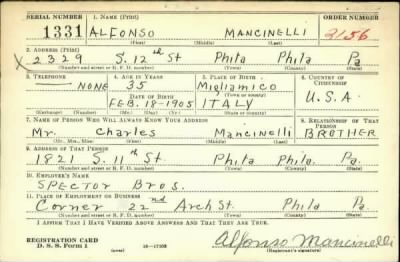 SERIAL NUMBER 1. NAME (Print) ORDER NUMBER
1331 ALFONSO MANCINELLI 2156
(First) (Middle) (Last)
2. ADDRESS (Print)
X 2329 S. 12th St Phila Phila Pa.
(Number and street or R. F. D. number) (Town) (County) (State)
3. TELEPHONE 4. AGE IN YEARS 5. PLACE OF BIRTH 6. COUNTRY OF CITIZENSHIP
— NONE 35 Migliamico U.S.A.
DATE OF BIRTH (Town or county)
FEB. 18-1905 ITALY
(Exchange) (Number) (Mo.) (Day) (Yr.) (State or country)
7. NAME OF PERSON WHO WILL ALWAYS KNOW YOUR ADDRESS 8. RELATIONSHIP OF THAT PERSON
Mr. Charles Mancinelli BROTHER
(Mr., Mrs., Miss) (First) (Middle) (Last)
9. ADDRESS OF THAT PERSON
1821 S. 11th St. Phila Phila Pa.
(Number and street or R. F. D. number) (Town) (County) (State)
10. EMPLOYER'S NAME
SPECTOR Bros.
11. PLACE OF EMPLOYMENT OR BUSINESS
Corner 22nd Arch St. Phila Pa.
(Number and street or R. F. D. number) (Town) (County) (State)
I AFFIRM THAT I HAVE VERIFIED ABOVE ANSWERS AND THAT THEY ARE TRUE.
REGISTRATION CARD
D. S. S. Form 1 (over) 16—17105 Alfonso Mancinelli
(Registrant's signature)